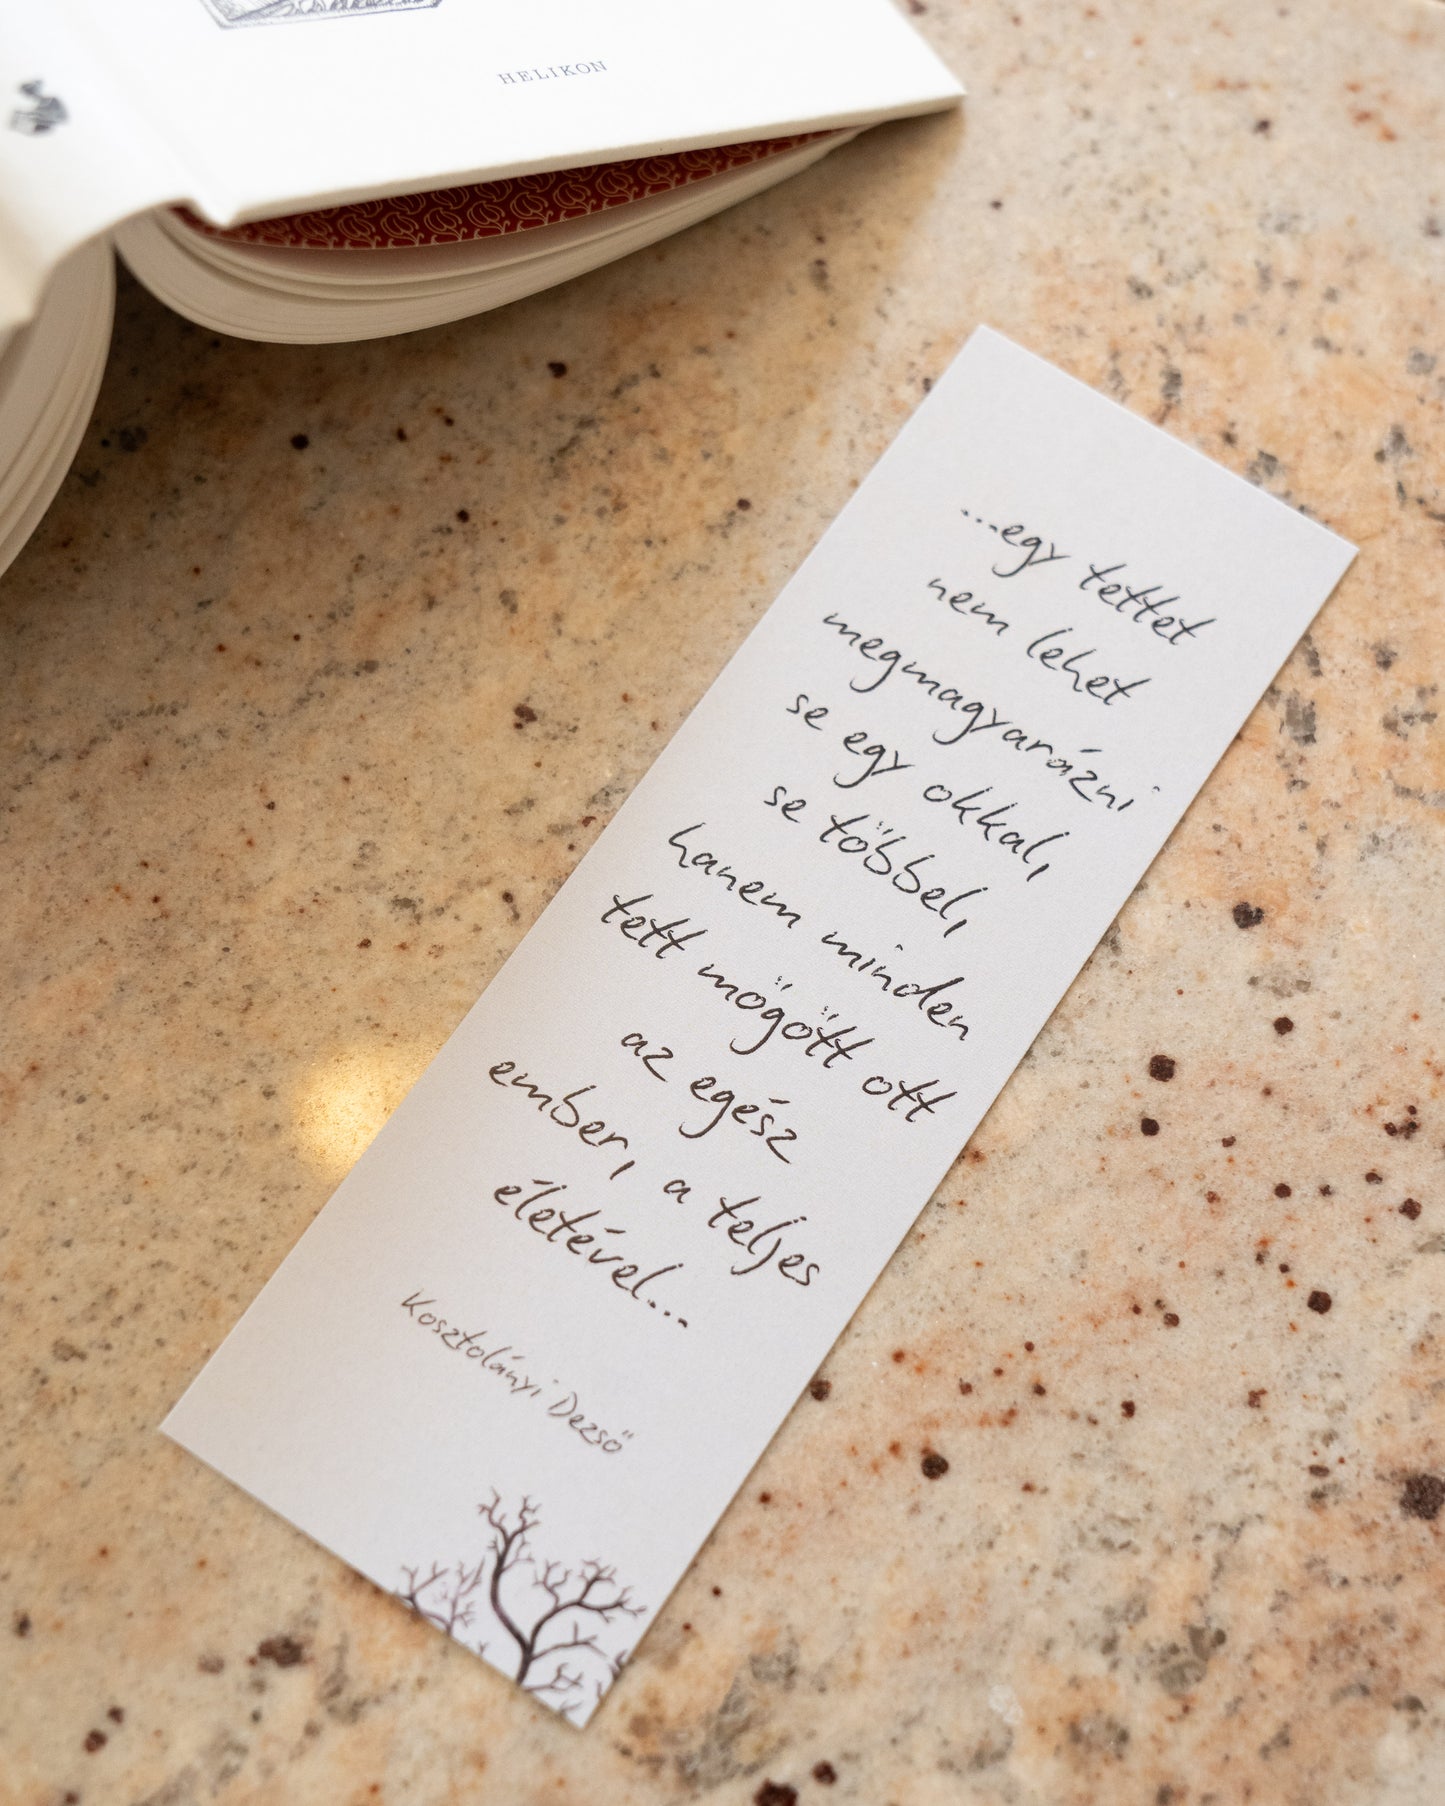 HELIKON
...egy tettet
nem lehet
megmagyarázni
se egy okkal,
se többel,
hanem minden
tett mögött ott
az egész
ember, a teljes
életével...
Kosztolányi Dezső